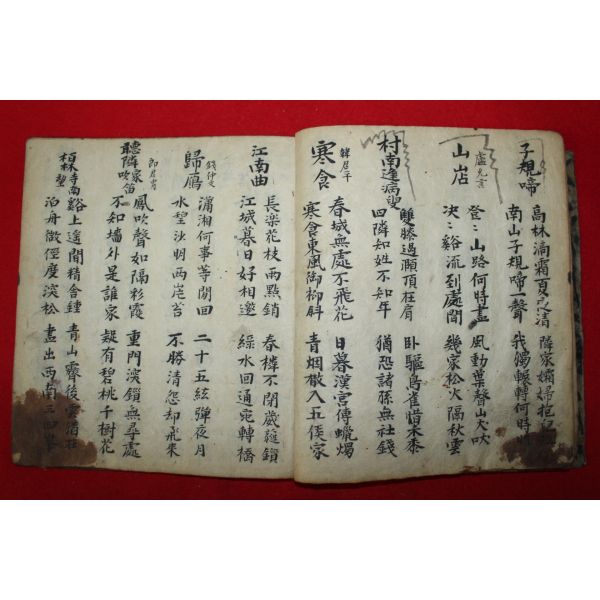 子規啼
高林滴霜夏夜清 隣家孀婦抱
南山子規啼一聲 我獨輾轉何時
山店
盧允言
登〻山路何時盡 風動葉聲山犬吠
決〻谿流到處聞 幾家松火隔秋雲
村南逢病叟
雙膝過頤頂在肩 臥驅鳥雀惜禾黍
四隣知姓不知年 猶恐諸孫無社錢
寒食
韓君平
春城無處不飛花 日暮漢宮傳蠟燭
寒食東風御柳斜 青烟散入五侯家
江南曲
長楽花枝雨點銷 春樓不閉葳蕤鎖
江城暮日好相邀 綠水回通宛轉橋
歸鴈
錢仲文
瀟湘何事等閒回 二十五絃彈夜月
水碧沙明兩岸苔 不勝清怨却飛來
聽隣家吹笛
郎君胄
鳳吹聲如隔彩霞 重門深鎖無尋處
不知墻外是誰家 疑有碧桃千樹花
栢林寺南望
谿上遥聞精舍鍾 青山霽後雲猶在
泊舟微徑度深松 畫出西南三四